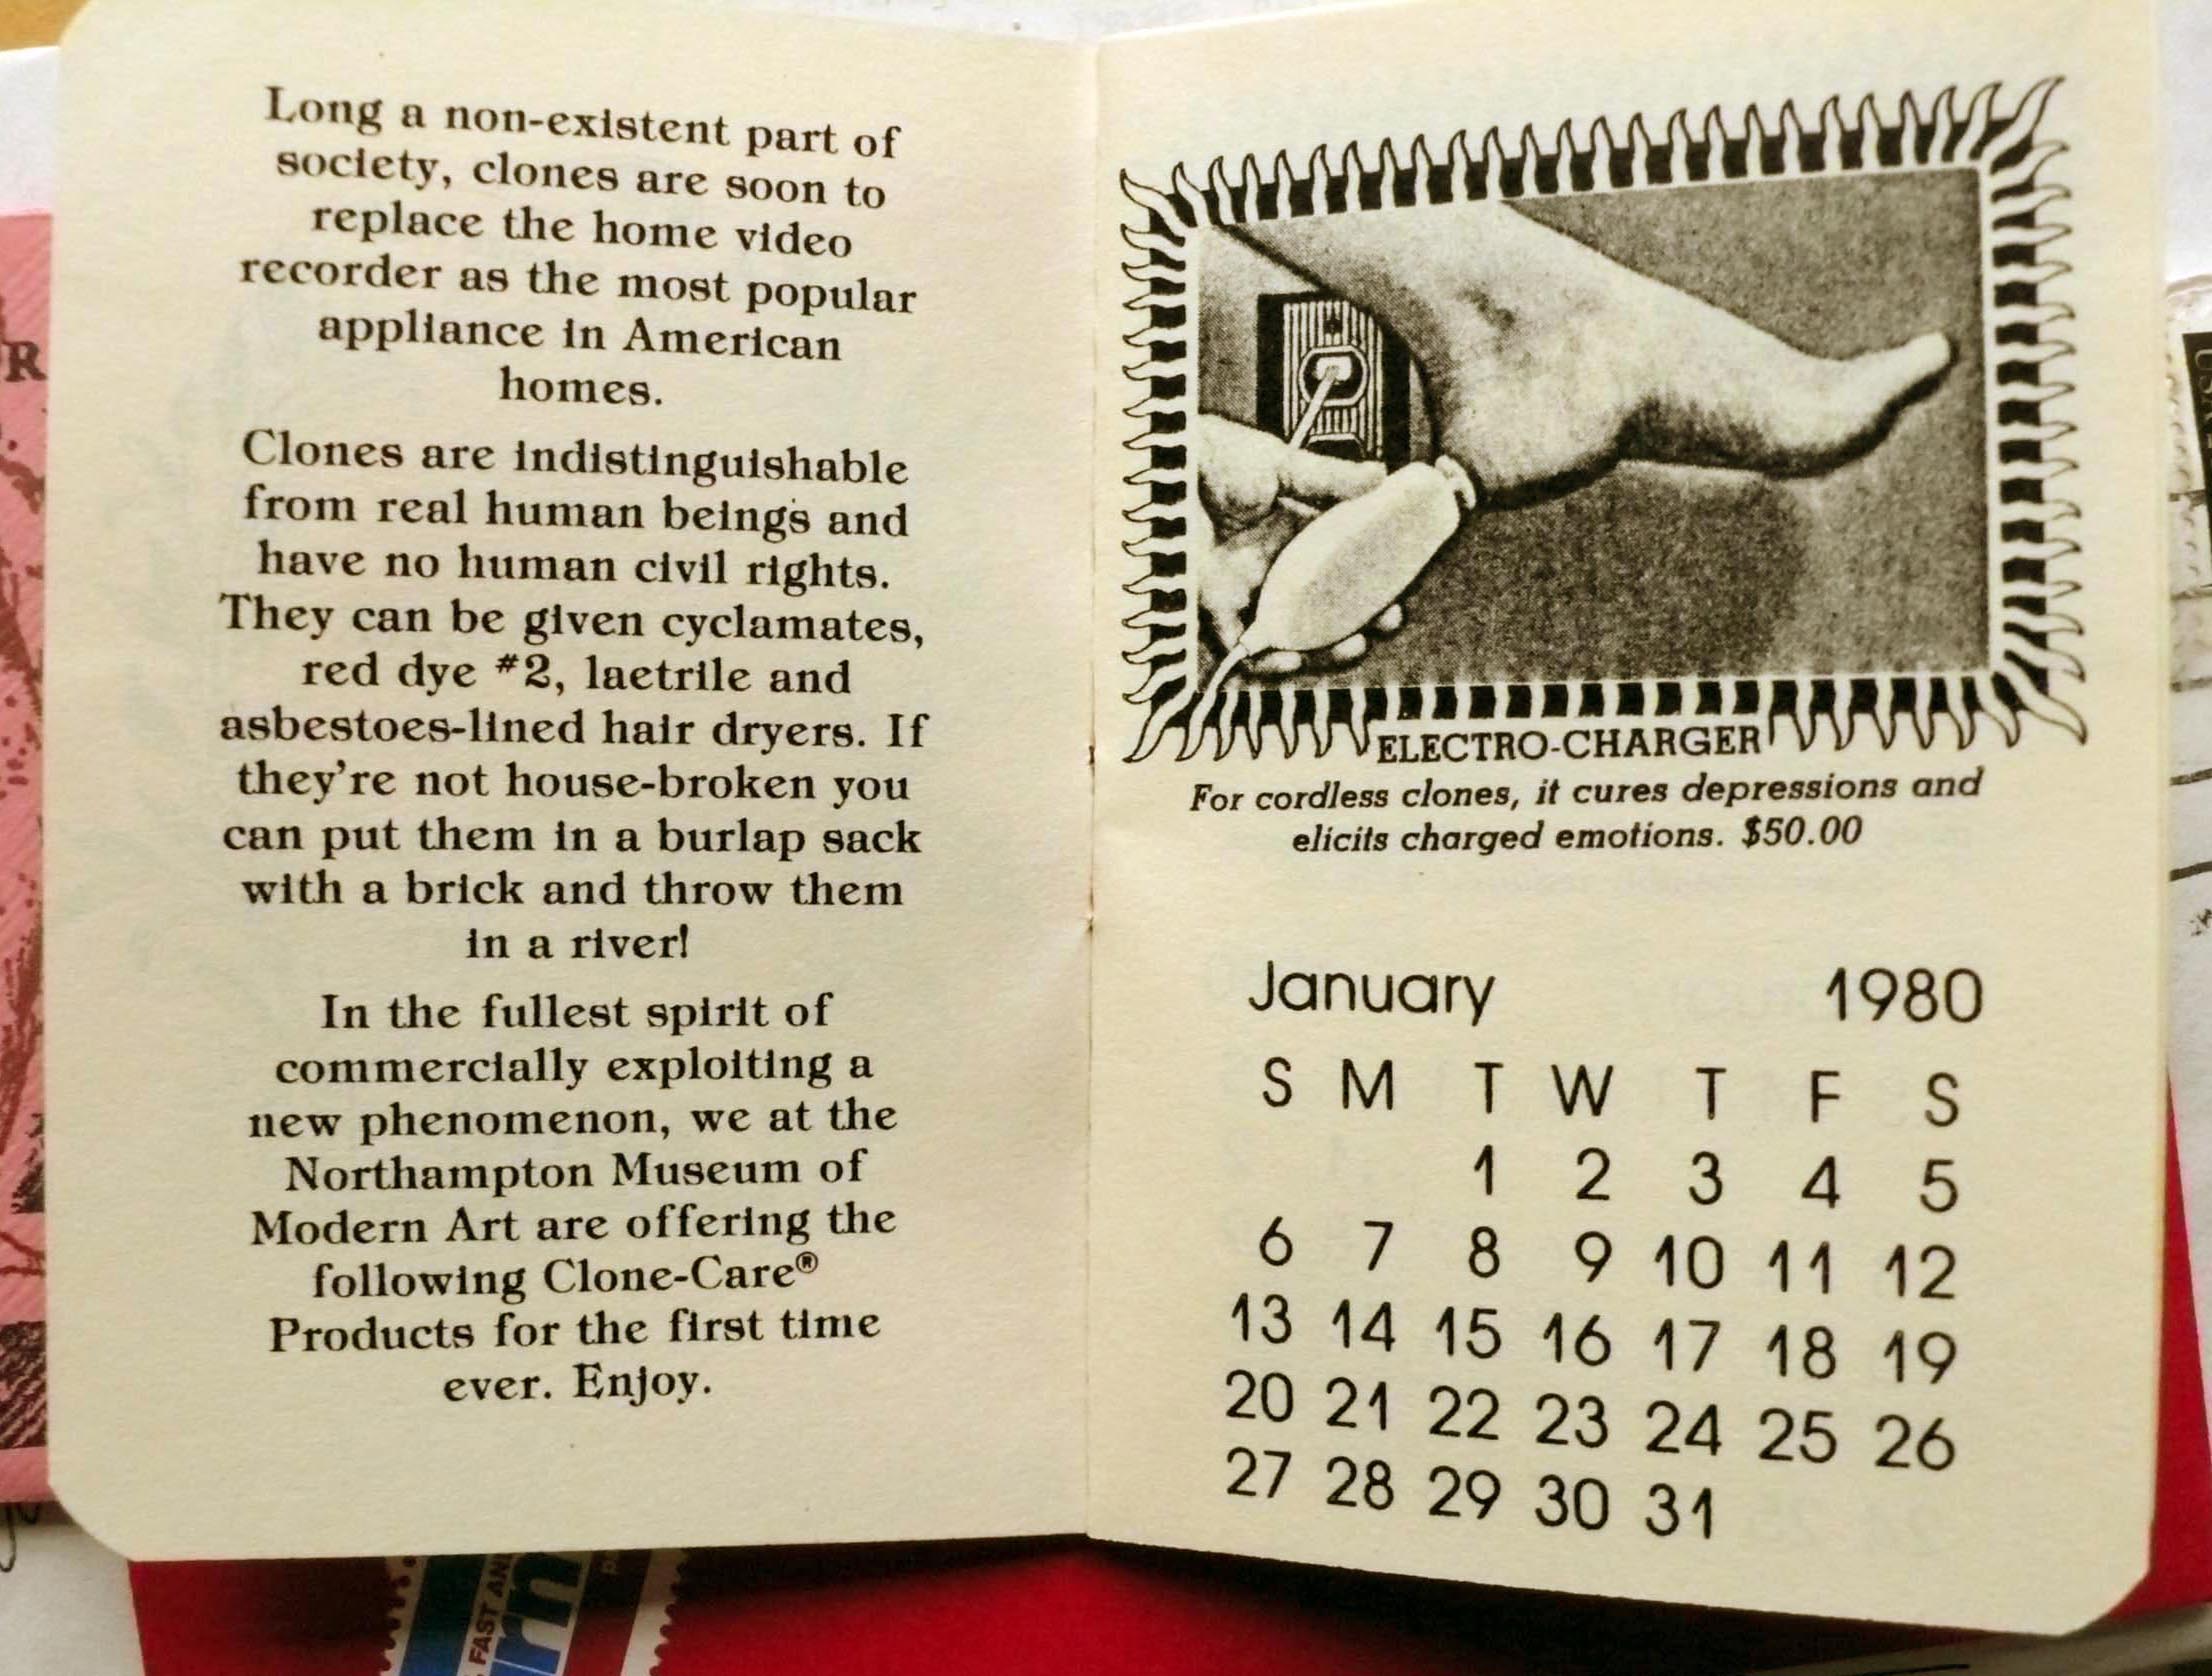 Long a non-existent part of
society, clones are soon to
replace the home video
recorder as the most popular
appliance in American
homes.
Clones are indistinguishable
from real human beings and
have no human civil rights.
They can be given cyclamates,
red dye #2, laetrile and
asbestoes-lined hair dryers. If
they're not house-broken you
can put them in a burlap sack
with a brick and throw them
in a river!
In the fullest spirit of
commercially exploiting a
new phenomenon, we at the
Northampton Museum of
Modern Art are offering the
following Clone-Care®
Products for the first time
ever. Enjoy.
ELECTRO-CHARGER
For cordless clones, it cures depressions and
elicits charged emotions. $50.00
January 1980
S M T W T F S
1 2 3 4 5
6 7 8 9 10 11 12
13 14 15 16 17 18 19
20 21 22 23 24 25 26
27 28 29 30 31
R
FAST AN
rn